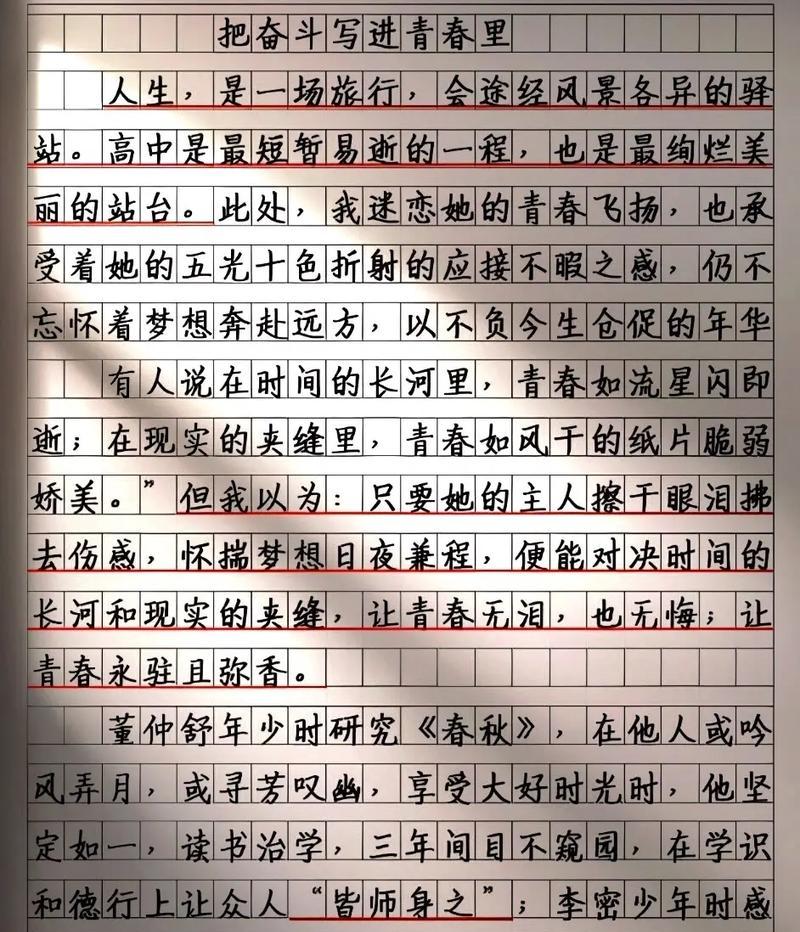 把奋斗写进青春里
人生，是一场旅行，会途经风景各异的驿
站。高中是最短暂易逝的一程，也是最绚烂美
丽的站台。此处，我迷恋她的青春飞扬，也承
受着她的五光十色折射的应接不暇之感，仍不
忘怀着梦想奔赴远方，以不负今生仓促的年华
有人说在时间的长河里，青春如流星闪即
逝；在现实的夹缝里，青春如风干的纸片脆弱
娇美。”但我以为：只要她的主人擦干眼泪拂
去伤感，怀揣梦想日夜兼程，便能对决时间的
长河和现实的夹缝，让青春无泪，也无悔；让
青春永驻且弥香。
董仲舒年少时研究《春秋》，在他人或吟
风弄月，或寻芳叹幽，享受大好时光时，他坚
定如一，读书治学，三年间目不窥园，在学识
和德行上让众人“皆师身之”；李密少年时感